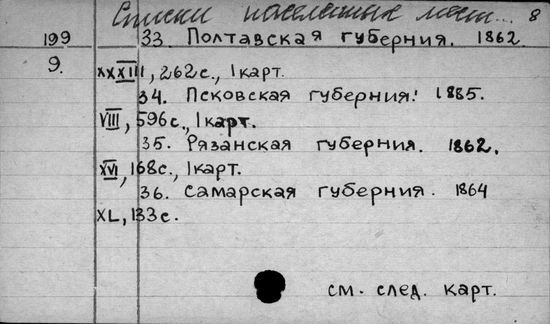 Списки населенных мест... 8
199 33. Полтавская губерния. 1862
9. XXXIII, 262с., 1карт.
34. Псковская губерния. 1885.
VIII, 596с., 1карт.
35. Рязанская губерния. 1862.
XVI, 168с., 1карт.
36. Самарская губерния. 1864
XL, 133с.
см. след. карт.